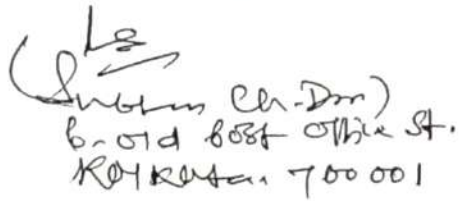 (Subhas Ch. Das)
6- old Post Office St.
Kolkata. 700001